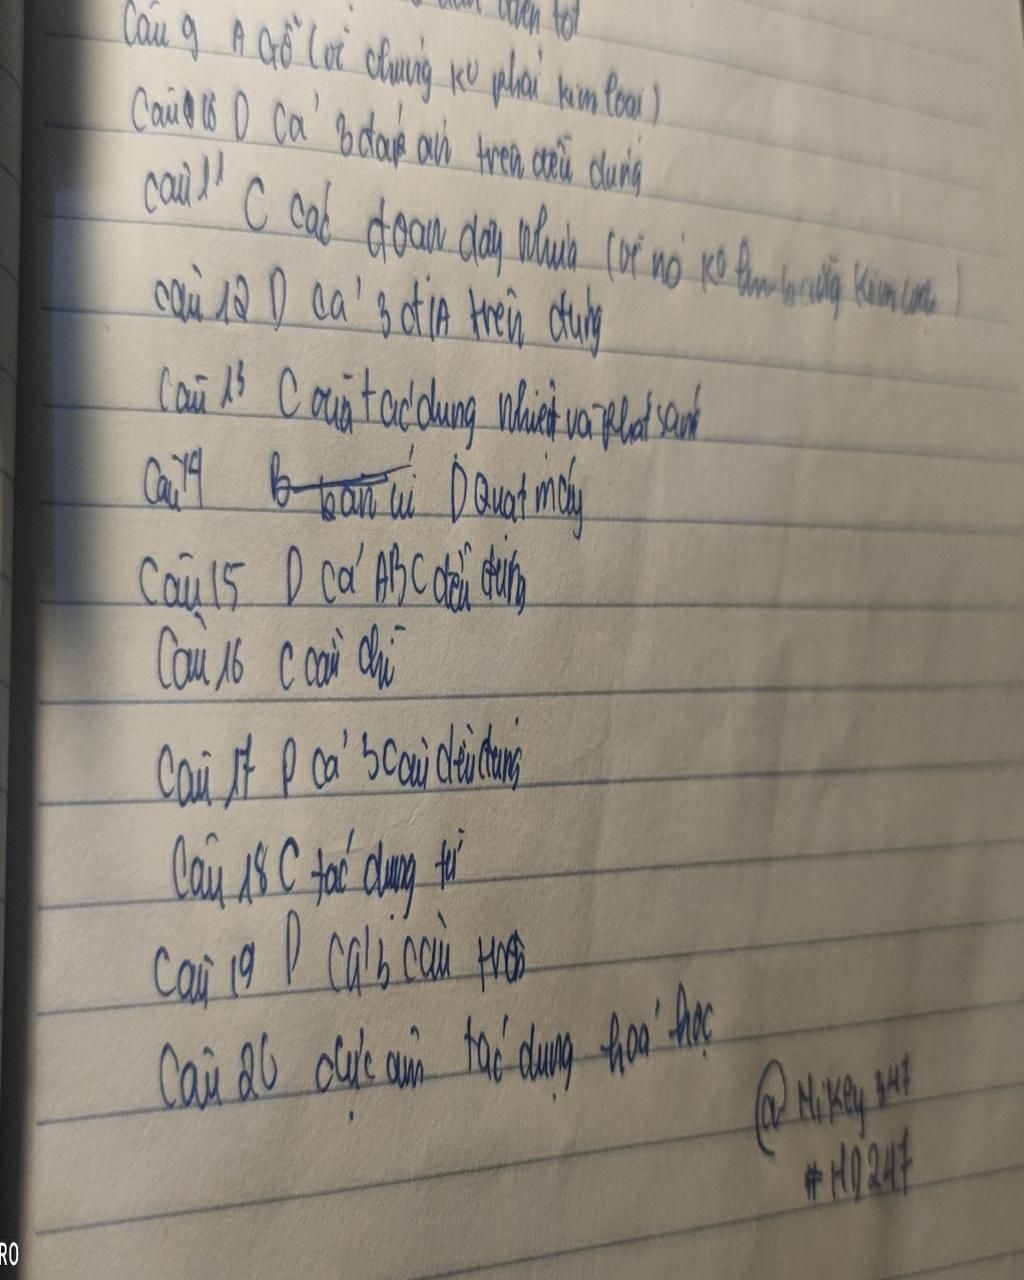 điện tốt
Câu 9 A Gỗ (vì chúng ko phải kim loại)
Câu 10 D Cả 3 đáp án trên đều đúng
câu 11 C các đoạn dây nhựa (vì nó ko làm bằng kim loại)
câu 12 D cả 3 đ/A trên đúng
Câu 13 C của tác dụng nhiệt và phát sánh
Câu 14 B bàn ủi D Quạt máy
Câu 15 D Cả ABC đều đúng
Câu 16 C cầu chì
Câu 17 D cả 3 câu đều đúng
Câu 18 C tác dụng từ
Câu 19 D cả 3 câu trên
Câu 20 cực âm tác dụng hoá học
@Mikey 347
#HD247
RO